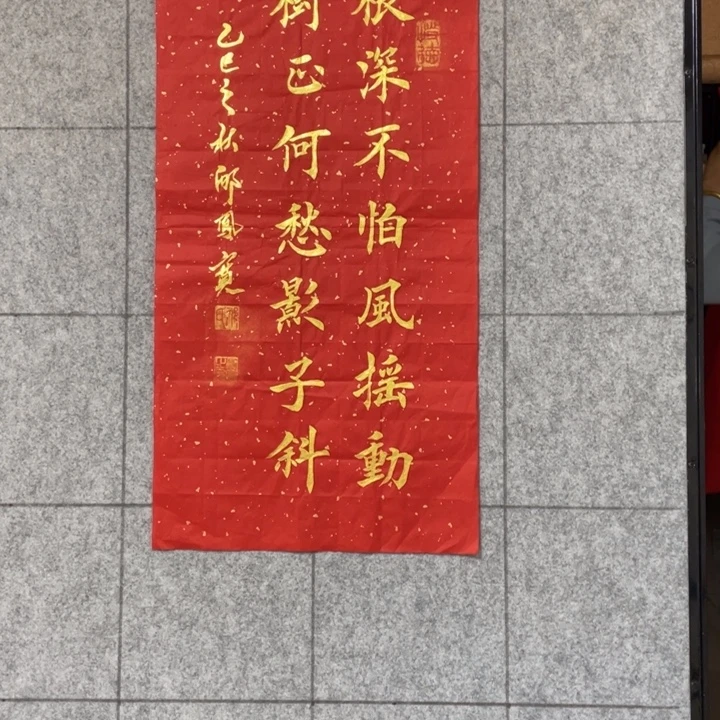 根深不怕風摇動
樹正何愁影子斜
乙巳之秋邱鳳寛